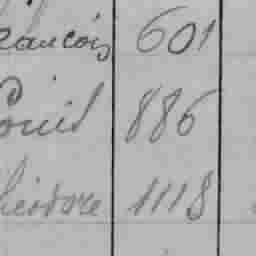 rancois 601
Louis 886
héodore 1118